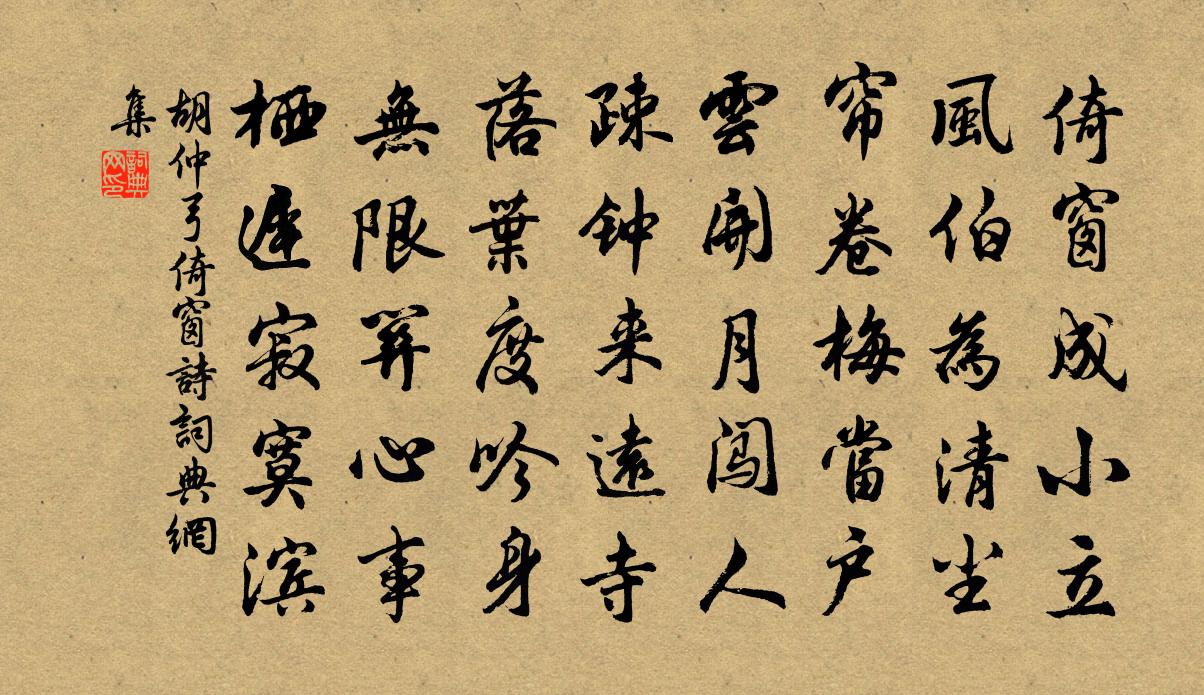 倚窗成小立
風伯為清尘
帘卷梅當户
雲開月闯人
疎钟来遠寺
落葉度吟身
無限羇心事
栖遲寂寞滨
胡仲弓倚窗詩詞典網
集
詞典
网印